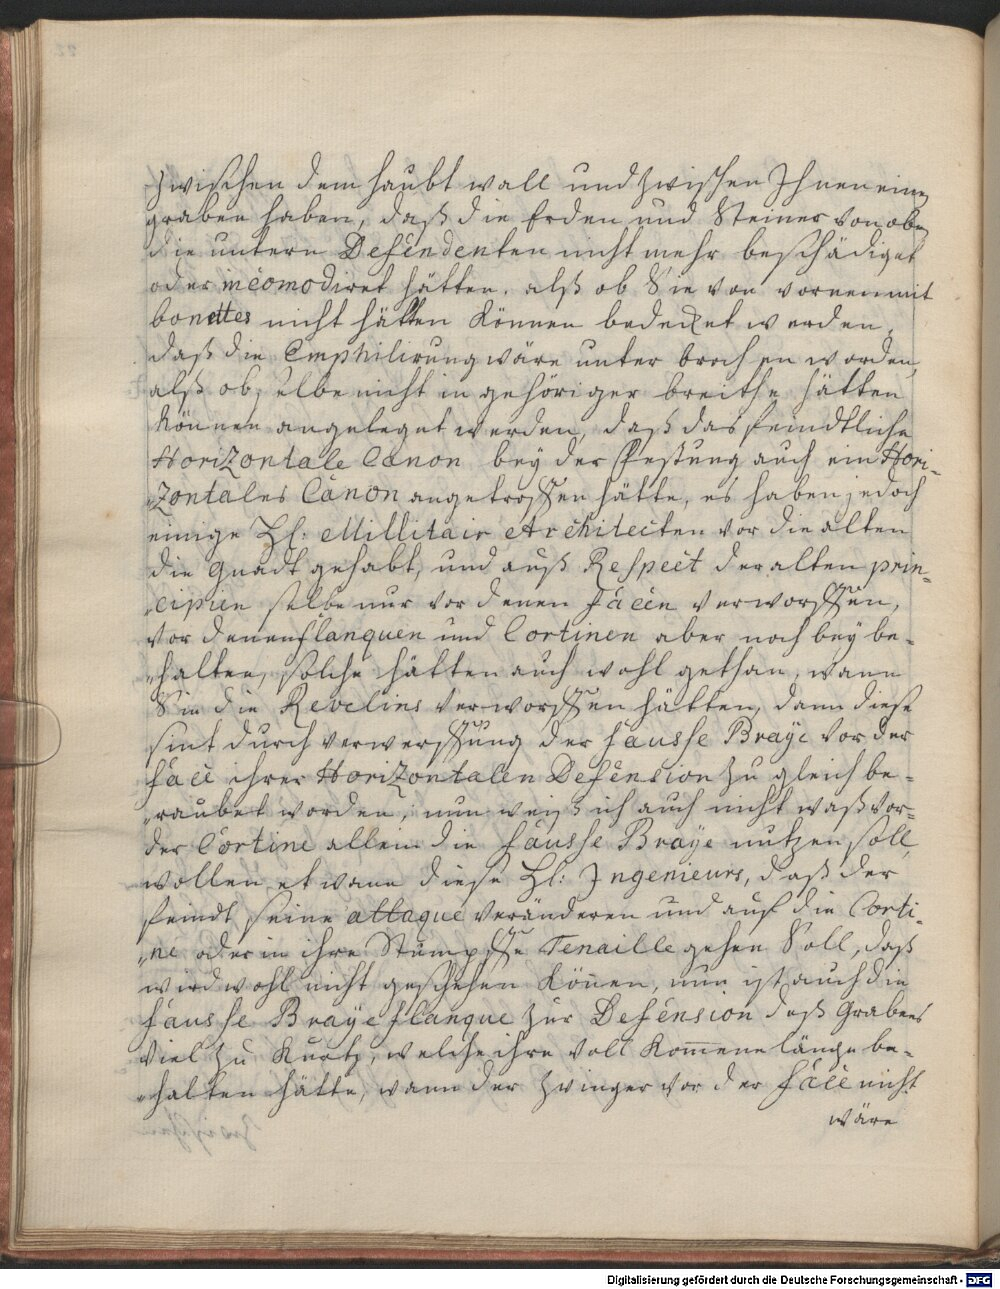 zwischen dem haubt wall und zwischen Ihnen einen
graben haben, daß die Erden und Steiner von oben
die untern Defendenten nicht mehr beschädiget
oder incomodiret hätten. alß ob Sie von vornen mit
bonettes nicht hätten Können bedecket werden,
daß die Emphilirung wäre unter brochen worden,
alß ob selbe nicht in gehöriger breithe hätten
Können angeleget werden, daß das feindtliche
Horizontale Canon bey der Festung auch ein Hori-
„zontales Canon angetroffen hätte, es haben jedoch
einige Hl: Millitair Architecten vor die alten
die Gnadt gehabt, und auß Respect der alten prin-
„cipien selbe nur vor denen Facen verworffen,
vor denen flanquen und Cortinen aber noch bey be-
„halten, solche hätten auch wohl gethan, wann
Sie die Revelins verworffen hätten, dann diese
sint durch verwerffung der fausse Braye vor der
face ihrer Horizontalen Defension zu gleich be-
„raubet worden, nun weiß ich auch nicht waß vor-
der Cortine allein die fausse Braye nutzen soll,
wollen etwann diese Hl: Ingenieurs, daß der
feindt seine attaque veränderen und auf die Corti-
„ne oder in ihre Stumpffe Tenaille gehen Soll, daß
wird wohl nicht geschehen Können, nun ist auch die
fausse Braye flanque zur Defension deß Grabens
viel zu Kurtz, welche ihre voll Kommene länge be-
„halten hätte, wann der zwinger vor der face nicht
wäre
Digitalisierung gefördert durch die Deutsche Forschungsgemeinschaft - DFG